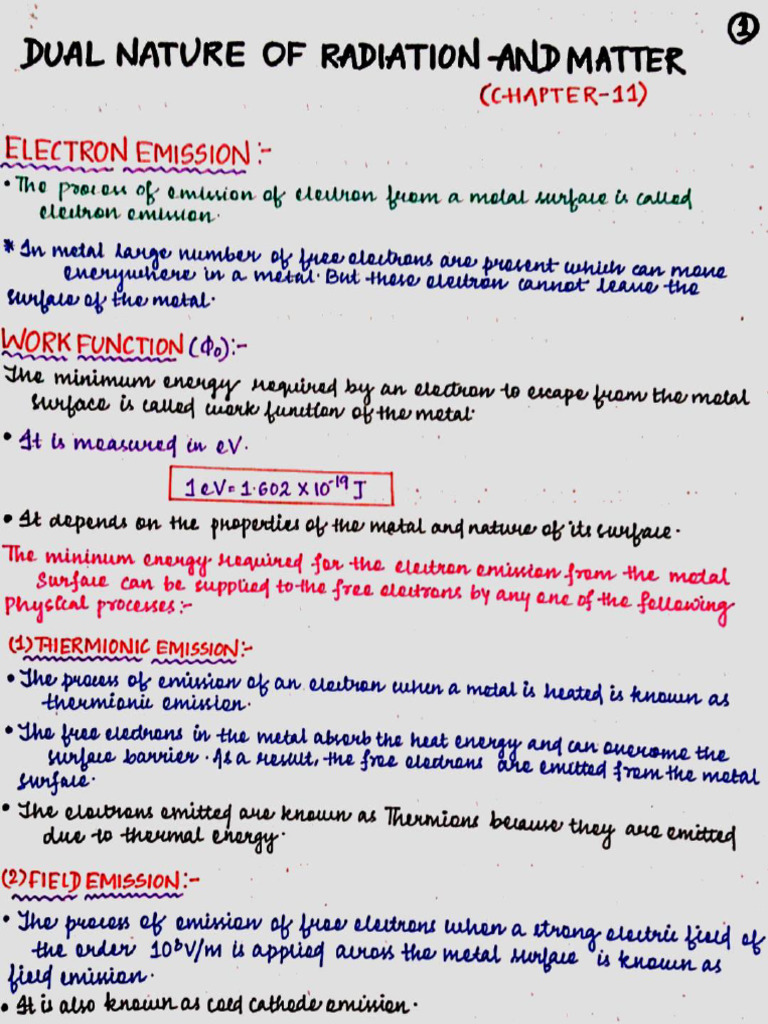 ①
DUAL NATURE OF RADIATION AND MATTER
(CHAPTER-11)
ELECTRON EMISSION:-
• The process of emission of electron from a metal surface is called
electron emission.
* In metal large number of free electrons are present which can move
everywhere in a metal. But these electron cannot leave the
surface of the metal.
WORK FUNCTION (Φ₀):-
The minimum energy required by an electron to escape from the metal
surface is called work function of the metal.
• It is measured in eV.
1 eV = 1.602 X 10⁻¹⁹ J
• It depends on the properties of the metal and nature of its surface.
The minimum energy required for the electron emission from the metal
surface can be supplied to the free electrons by any one of the following
physical processes:-
(1) THERMIONIC EMISSION:-
• The process of emission of an electron when a metal is heated is known as
thermionic emission.
• The free electrons in the metal absorb the heat energy and can overcome the
surface barrier. As a result, the free electrons are emitted from the metal
surface.
• The electrons emitted are known as Thermions because they are emitted
due to thermal energy.
(2) FIELD EMISSION:-
• The process of emission of free electrons when a strong electric field of
the order 10⁸V/m is applied across the metal surface is known as
field emission.
• It is also known as cold cathode emission.